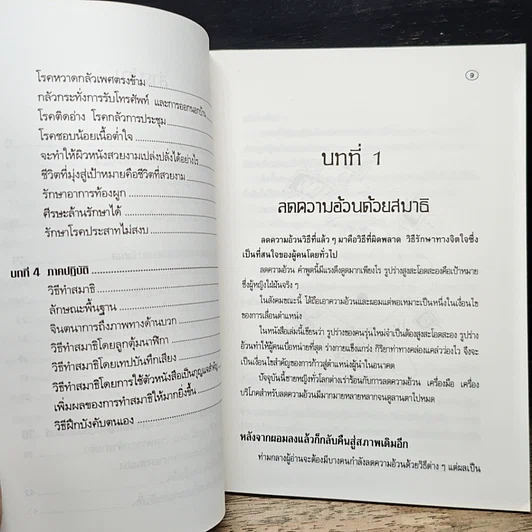 โรคหวาดกลัวเพศตรงข้าม
กลัวกระทั่งการรับโทรศัพท์ และการออกนอกบ้าน
โรคติดอ่าง โรคกลัวการประชุม
โรคชอบน้อยเนื้อต่ำใจ
จะทำให้ผิวหนังสวยงามเปล่งปลั่งได้อย่างไร
ชีวิตที่มุ่งสู่เป้าหมายคือชีวิตที่สวยงาม
รักษาอาการท้องผูก
ศีรษะล้านรักษาได้
รักษาโรคประสาทไม่สงบ
บทที่ 4 ภาคปฏิบัติ
วิธีทำสมาธิ
ลักษณะพื้นฐาน
จินตนาการถึงภาพทางด้านบวก
วิธีทำสมาธิโดยลูกตุ้มนาฬิกา
วิธีทำสมาธิโดยเทปบันทึกเสียง
วิธีทำสมาธิโดยการใช้ตัวหนังสือเป็นกุญแจสำคัญ
เพิ่มผลของการทำสมาธิให้มากยิ่งขึ้น
วิธีฝึกบังคับตนเอง
9
บทที่ 1
ลดความอ้วนด้วยสมาธิ
ลดความอ้วนวิธีที่แล้ว ๆ มาคือวิธีที่ผิดพลาด วิธีรักษาทางจิตใจซึ่ง
เป็นที่สนใจของผู้คนโดยทั่วไป
ลดความอ้วน คำพูดนี้มีแรงดึงดูดมากเพียงไร รูปร่างสูงสะโอดสะองคือเป้าหมาย
ซึ่งผู้หญิงใฝ่ฝันจริง ๆ
ในสังคมขณะนี้ ได้ถือเอาความอ้วนและผอมแต่พอเหมาะเป็นหนึ่งในเงื่อนไข
ของการเลื่อนตำแหน่ง
ในหนังสือเล่มนี้เขียนว่า รูปร่างของคนรุ่นใหม่จำเป็นต้องสูงสะโอดสะอง รูปร่าง
อ้วนทำให้ผู้คนเบื่อหน่ายที่สุด ร่างกายแข็งแกร่ง กิริยาท่าทางคล่องแคล่วว่องไว จึงจะ
เป็นเงื่อนไขสำคัญของการก้าวสู่ตำแหน่งผู้นำในอนาคต
ปัจจุบันนี้ชายหญิงทั่วโลกต่างเร่าร้อนกับการลดความอ้วน เครื่องมือ เครื่อง
บริโภคสำหรับลดความอ้วนมีมากมายหลายหลากจนดูลานตาไปหมด
หลังจากผอมลงแล้วก็กลับคืนสู่สภาพเดิมอีก
ท่ามกลางผู้อ่านจะต้องมีบางคนกำลังลดความอ้วนด้วยวิธีต่าง ๆ แต่ผลเป็น